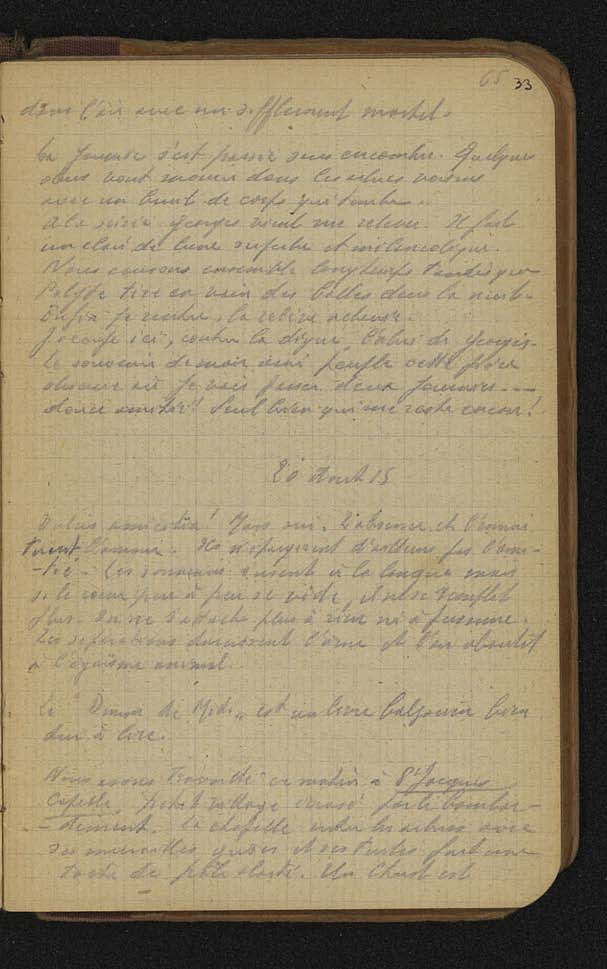 65 33
dans l'air avec un sifflement mortel.
La journée s'est passée sans encombre. Quelques
obus vont mourir dans les arbres voisins
avec un bruit de corps qui tombe..
A la soirée Georges vient me relever. Il fait
un clair de lune superbe et mélancolique.
Nous causons ensemble longtemps tandis que
tire en vain des balles dans la nuit.
Enfin je rentre, la relève achevée.
J'occupe ici, contre la digue, l'abri de Georges.
Le souvenir de mon ami peuple cette pièce
obscure où je vais passer deux journées ---
douce amitié! Seul bien qui me reste encore!
20 Aout 15
amicitia! Mais oui. L'absence et l'ennui
tuent l'amour. Ils n'épargnent d'ailleurs pas l'ami-
-tié. Les souvenirs s'usent à la longue mais
si le cœur peu à peu se vide, il ne se remplit
plus. On ne s'attache plus à rien ni à personne.
Les séparations durcissent l'âme et l'on aboutit
à l'égoïsme animal.
Le "Démon de Midi" est un livre bien
dur à lire.
Nous avons travaillé ce matin à St Jacques
Capelle, petit village écrasé par le bombar-
-dement. La chapelle entre les arbres avec
ses murailles grises et ses tuiles fait une
tache de Un Christ est